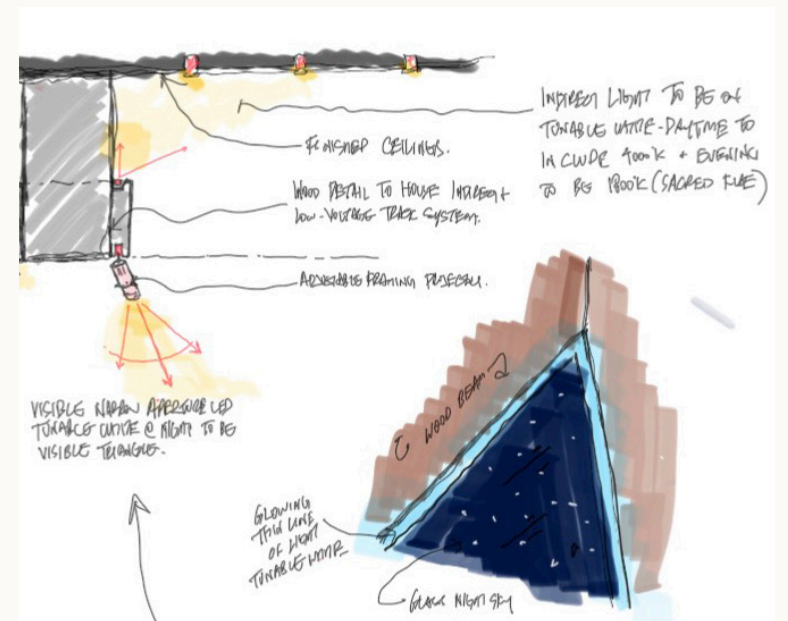 INDIRECT LIGHT TO BE ON
TUNABLE WHITE-DAYTIME TO
INCLUDE 400K + EVENING
TO BE 1800K (SACRED FIRE)
FINISHED CEILINGS.
WOOD DETAIL TO HOUSE INDIRECT +
LOW-VOLTAGE TRACK SYSTEM.
ADJUSTABLE FRAMING PROJECTOR.
VISIBLE NARROW APERTURE LED
TUNABLE WHITE @ NIGHT TO BE
VISIBLE TRIANGLE.
WOOD BEAM
GLOWING
THIN LINE
OF LIGHT
TUNABLE WHITE
GLASS NIGHT SKY